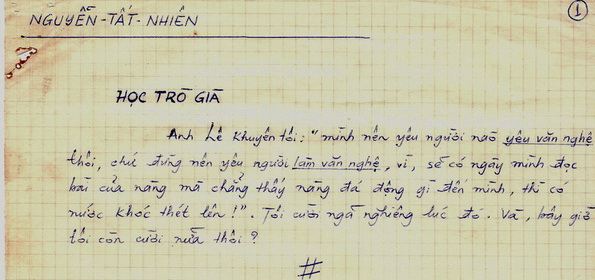 ①
NGUYỄN-TẤT-NHIÊN
HỌC TRÒ GIÀ
Anh Lê khuyên tôi: "mình nên yêu người nào yêu văn nghệ
thôi, chứ đừng nên yêu người làm văn nghệ, vì, sẽ có ngày mình đọc
bài của nàng mà chẳng thấy nàng đá động gì đến mình, thì có
nước khóc thét lên!". Tôi cười ngả nghiêng lúc đó. Và, bây giờ
tôi còn cười nữa thôi?
#